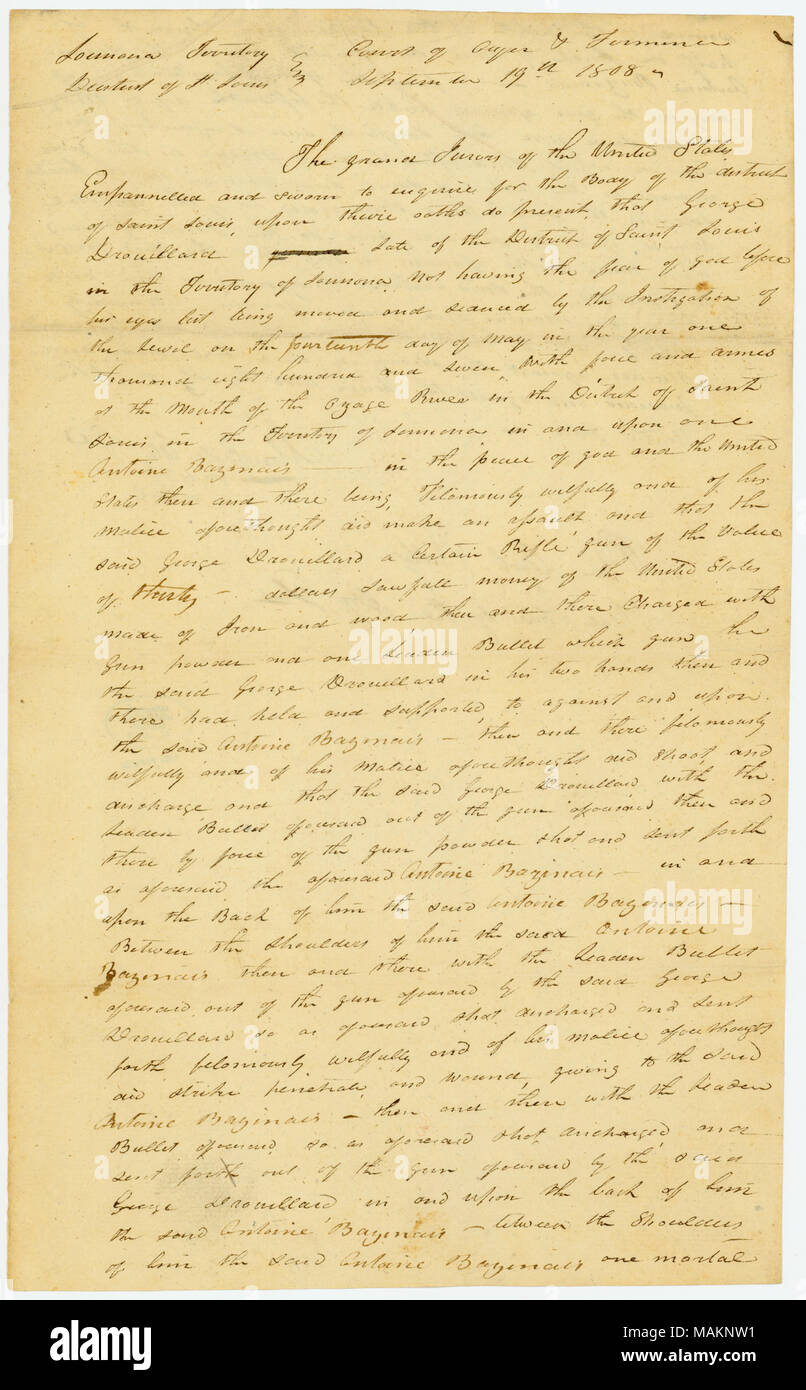 Louisiana Territory } Court of Oyer & Terminer
District of St Louis } September 19th 1808
The grand Jurors of the United States
Empannelled and sworn to enquire for the Body of the district
of Saint Louis, upon theire oaths do present, that George
Drouillard late of the District of Saint Louis
in the Territory of Louisiana, not having the fear of god before
his eyes but being moved and seduced by the Instigation of
the Devil on the fourteenth day of May in the year one
thousand eight hundred and seven, with force and armes
at the Mouth of the Ozage River in the District of Saint
Louis in the Territory of Louisiana in and upon one
Antoine Bazinais in the peace of god and the United
States then and there being, feloniously wilfully and of his
Malice aforethought did make an assault and that the
said George Drouillard a Certain Rifle gun of the Value
of thirty - dollars Lawfull money of the United States
made of Iron and wood then and there Charged with
Gun powder and one Leaden Bullet which gun he
the said George Drouillard in his two hands then and
there had, held and supported, to against and upon
the said Antoine Bazinais - then and there feloniously
wilfully and of his Malice aforethought did Shoot and
discharge and that the said George Drouillard with the
Leaden Bullet aforesaid out of the gun aforesaid then and
there by force of the gun powder shot and sent forth
as aforesaid the aforesaid Antoine Bazinais - in and
upon the Back of him the said Antoine Bazinais -
Between the shoulders of him the said Antoine
Bazinais then and there with the Leaden Bullet
aforesaid out of the gun aforesaid by the said George
Drouillard so as aforesaid shot discharged and sent
forth feloniously wilfully and of his malice aforethought
did strike penetrate and wound, giving to the said
Antoine Bazinais - then and there with the Leaden
Bullet aforesaid so as aforesaid shot, discharged and
sent forth out of the gun aforesaid by the said
George Drouillard in and upon the back of him
the said Antoine Bazinais - between the Shoulders
of him the said Antoine Bazinais one mortal
alamy
Image ID: MAKNW1
www.alamy.com